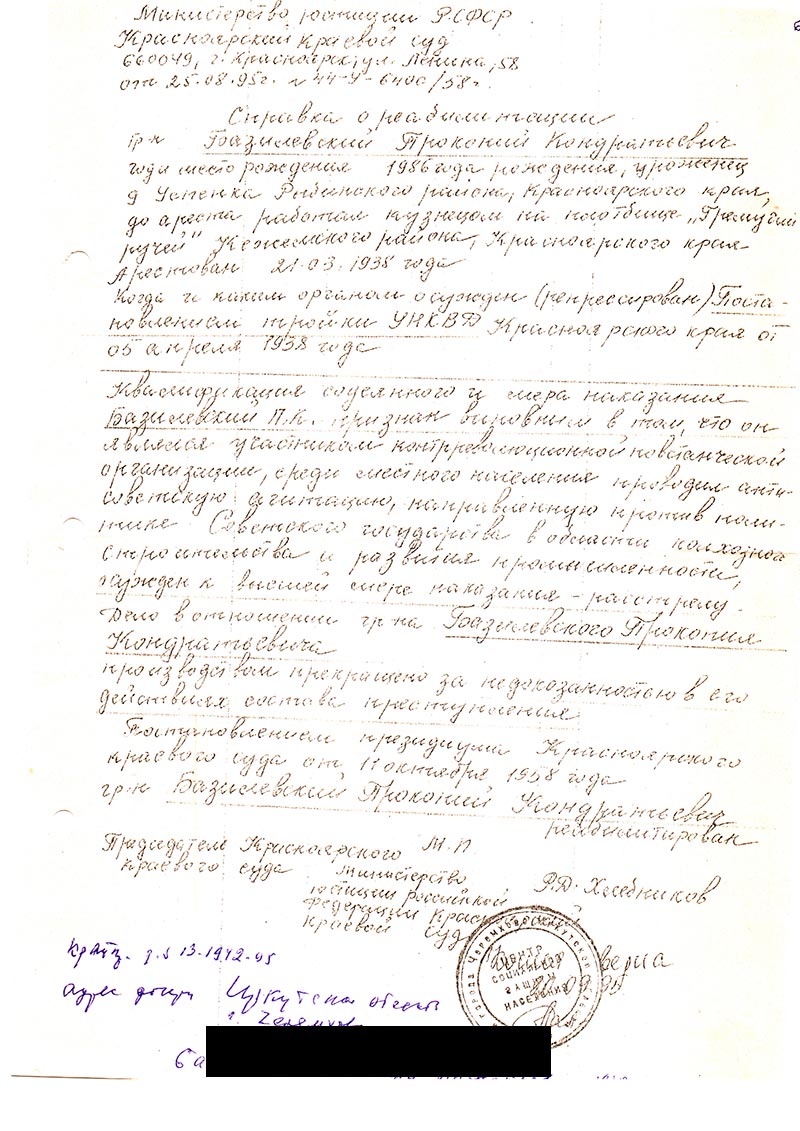 Министерство юстиции РСФСР
Красноярский краевой суд
660049, г. Красноярск, ул. Ленина, 58
от 25.08.95г. № 44-У-6400/58г.
Справка о реабилитации
гр-н Базилевский Прокопий Кондратьевич
год и место рождения 1986 года рождения, уроженец
д Успенка Рыбинского района, Красноярского края,
до ареста работал кузнецом на плотбище „Гремучий
ручей" Кежемского района, Красноярского края
Арестован 21.03.1938 года
Когда и каким органом осужден (репрессирован) Поста-
новлением тройки УНКВД Красноярского края от
05 апреля 1938 года
Квалификация содеянного и мера наказания
Базилевский П.К. признан виновным в том, что он
являлся участником контрреволюционной повстанческой
организации, среди местного населения проводил анти-
советскую агитацию, направленную против поли-
тики Советского государства в области колхозного
строительства и развития промышленности,
осужден к высшей мере наказания - расстрелу.
Дело в отношении гр-на Базилевского Прокопия
Кондратьевича
производством прекращено за недоказанностью в его
действиях состава преступления
Постановлением президиума Красноярского
краевого суда от 11 октября 1958 года
гр-н Базилевский Прокопий Кондратьевич
реабилитирован
Председатель Красноярского М.П
краевого суда
Министерство
юстиции Российской
Федерации Красн
краевой суд
Р.Д. Хлебников
верна
ЦЕНТР
СОЦИАЛЬНОЙ
ЗАЩИТЫ
НАСЕЛЕНИЯ
города Черемхово Иркутской
адрес дочери Иркутская область
г. Черемхов
Ба